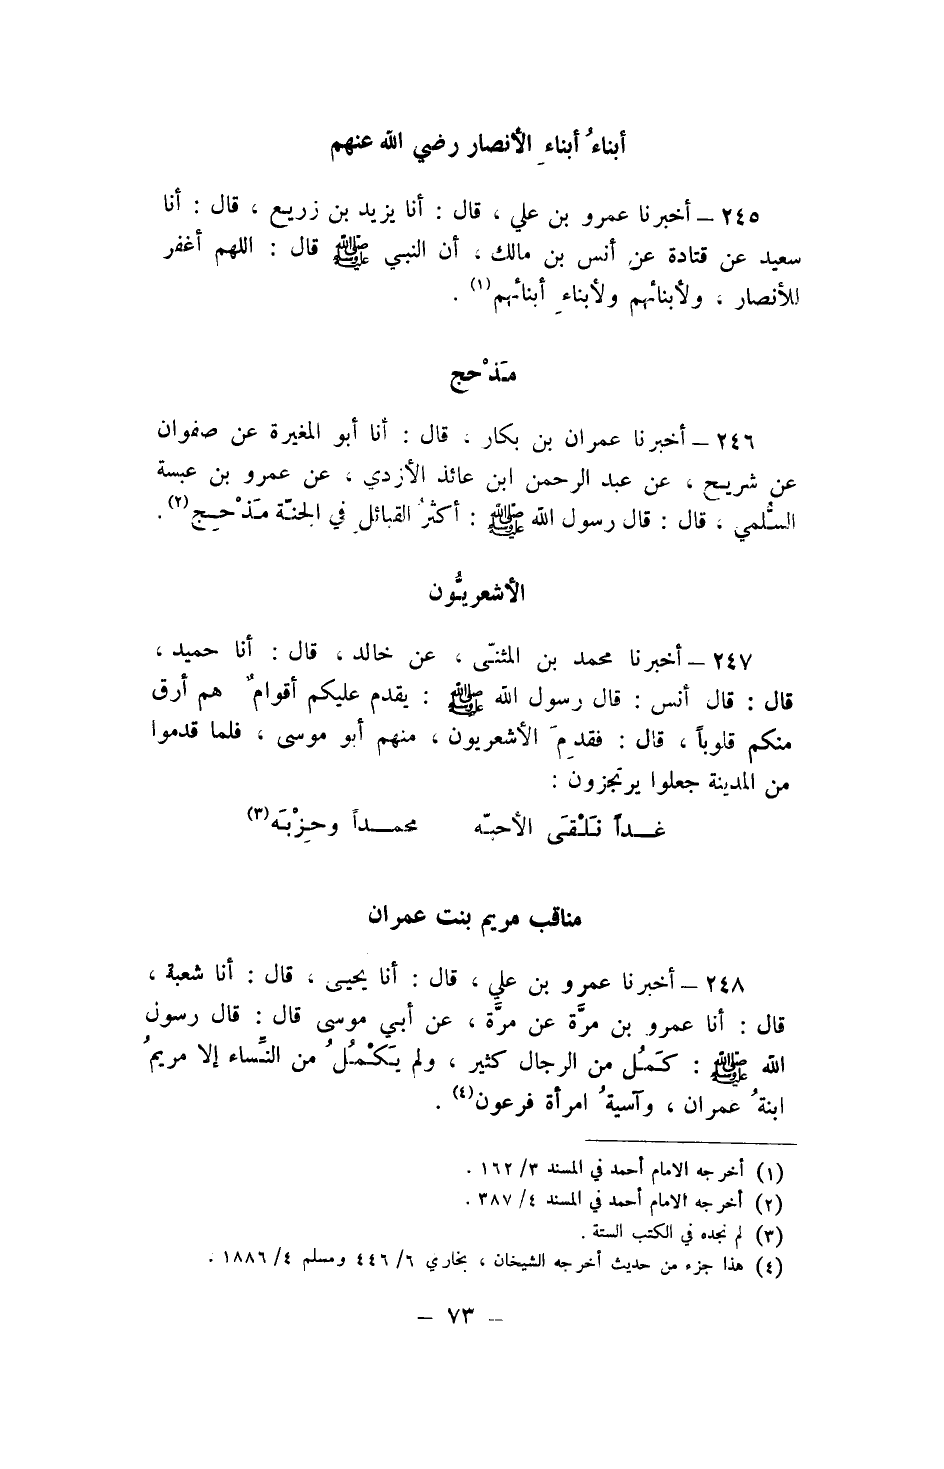 أبناءُ أبناءِ الأنصار رضي الله عنهم
٢٤٥ – أخبرنا عمرو بن علي ، قال : أنا يزيد بن زريع ، قال : أنا
سعيد عن قتادة عن أنس بن مالك ، أن النبي ﷺ قال : اللهم أغفر
للأنصار ، ولأبنائهم ولأبناءِ أبنائهم(١) .
مَذْحج
٢٤٦ – أخبرنا عمران بن بكار ، قال : أنا أبو المغيرة عن صفوان
عن شريح ، عن عبد الرحمن ابن عائذ الأزدي ، عن عمرو بن عبسة
السُّلمي ، قال : قال رسول الله ﷺ : أكثرُ القبائلِ في الجنّة مَذْحِج(٢) .
الأشعريُّون
٢٤٧ – أخبرنا محمد بن المثنّى ، عن خالد ، قال : أنا حميد ،
قال : قال أنس : قال رسول الله ﷺ : يقدم عليكم أقوامٌ هم أرق
منكم قلوباً ، قال : فقدِمَ الأشعريون ، منهم أبو موسى ، فلما قدموا
من المدينة جعلوا يرتجزون :
غــداً نَلْقَى الأحبّه محمــداً وحِزْبَه(٣)
مناقب مريم بنت عمران
٢٤٨ – أخبرنا عمرو بن علي ، قال : أنا يحيى ، قال : أنا شعبة ،
قال : أنا عمرو بن مرَّة عن مرَّة ، عن أبي موسى قال : قال رسول
الله ﷺ : كَمُل من الرجال كثير ، ولم يَكْمُلُ من النِّساء إلا مريمُ
ابنةُ عمران ، وآسيةُ امرأة فرعون(٤) .
(١) أخرجه الامام أحمد في المسند ٣/ ١٦٢ .
(٢) أخرجه الامام أحمد في المسند ٤/ ٣٨٧ .
(٣) لم نجده في الكتب الستة .
(٤) هذا جزء من حديث أخرجه الشيخان ، بخاري ٦/ ٤٤٦ ومسلم ٤/ ١٨٨٦ .
– ٧٣ –